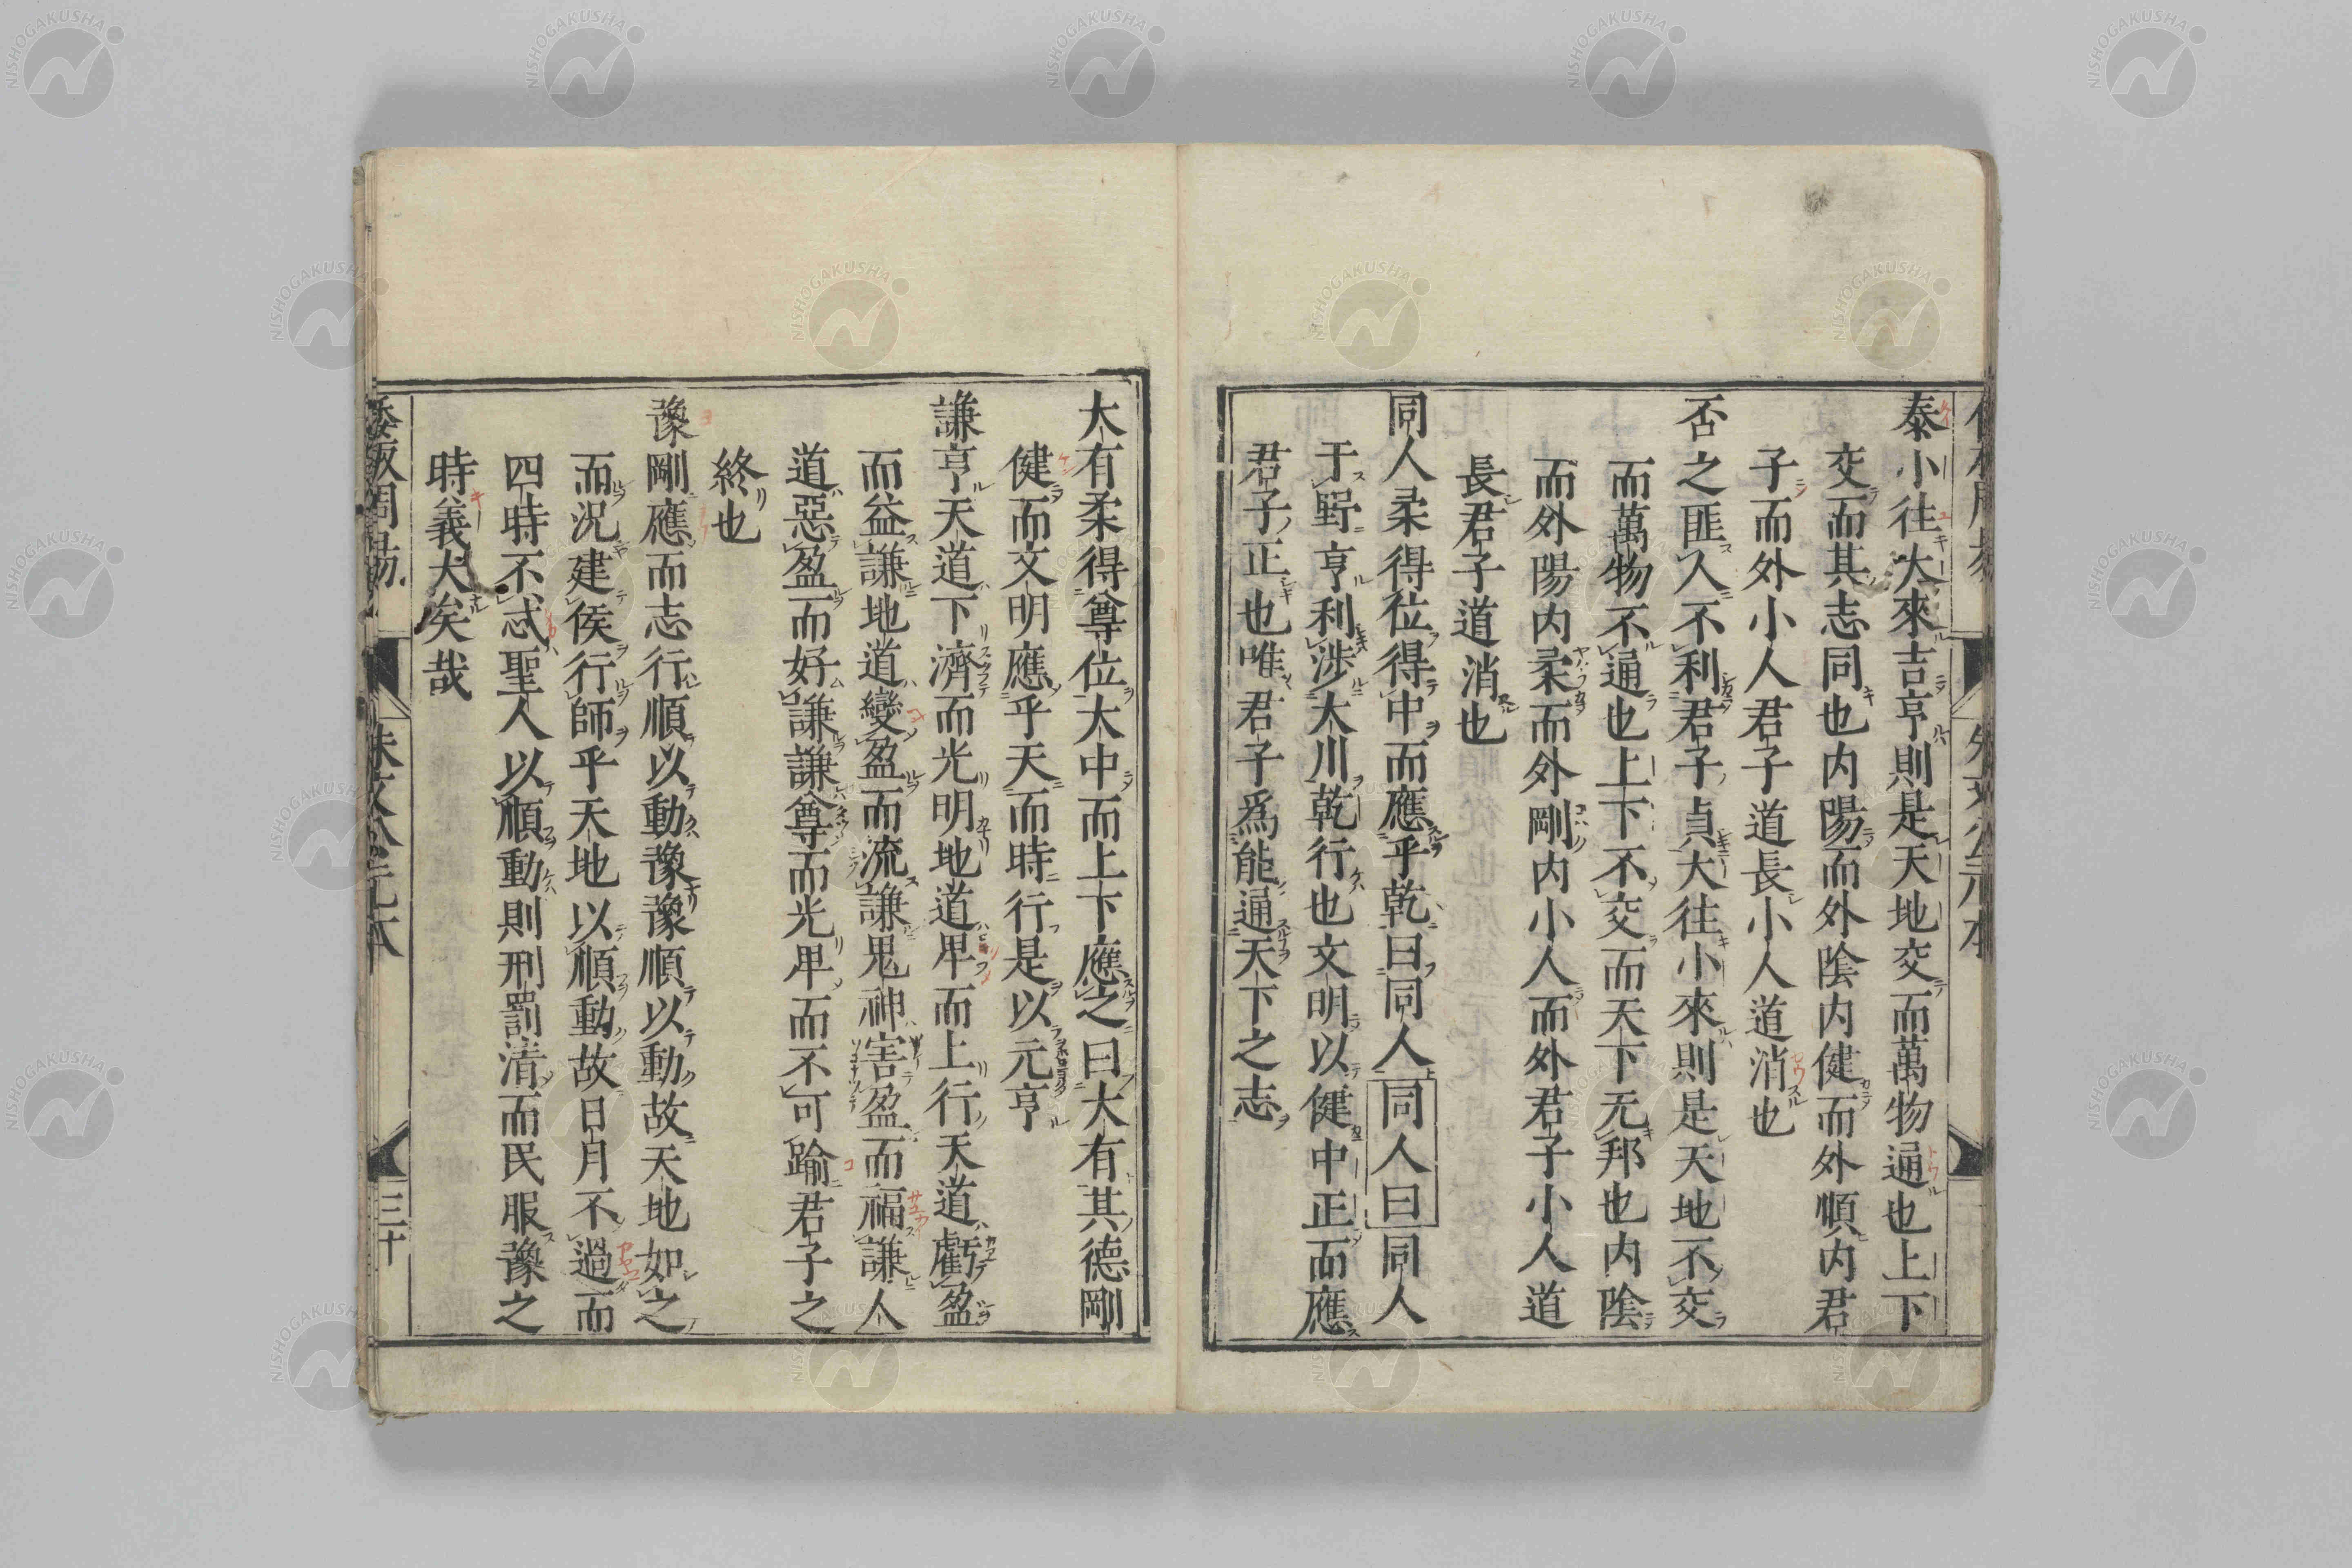 泰小往大來吉亨則是天地交而萬物通也上下
交而其志同也内陽而外陰内健而外順内君
子而外小人君子道長小人道消也
否之匪人不利君子貞大往小來則是天地不交
而萬物不通也上下不交而天下无邦也内陰
而外陽内柔而外剛内小人而外君子小人道
長君子道消也
同人柔得位得中而應乎乾曰同人同人曰同人
于野亨利涉大川乾行也文明以健中正而應
君子正也唯君子爲能通天下之志
大有柔得尊位大中而上下應之曰大有其德剛
健而文明應乎天而時行是以元亨
謙亨天道下濟而光明地道卑而上行天道虧盈
而益謙地道變盈而流謙鬼神害盈而福謙人
道惡盈而好謙謙尊而光卑而不可踰君子之
終也
豫剛應而志行順以動豫豫順以動故天地如之
而況建侯行師乎天地以順動故日月不過而
四時不忒聖人以順動則刑罰清而民服豫之
時義大矣哉
倭版周易 朱文公元本 三十
NISHOGAKUSHA